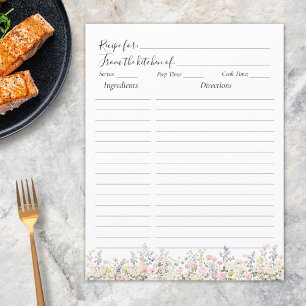 Recipe for:
From the kitchen of:
Serves: Prep Time: Cook Time:
Ingredients Directions